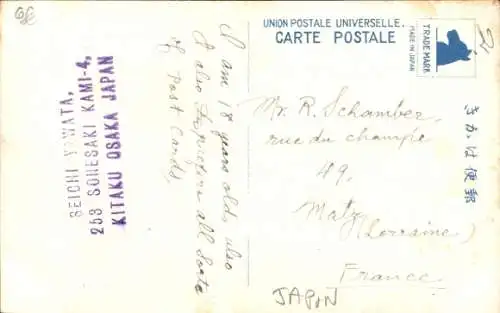 UNION POSTALE UNIVERSELLE.
CARTE POSTALE
TRADE MARK
MADE IN JAPAN
きかは便郵
Mr. R. Schamber
rue du champé
49.
Matz
(Lorraine)
France
JAPAN
I am 18 years old, also
I also all Sorts
of Post Cards,
SEICHI YAWATA,
253 SONESAKI KAMI-4,
KITAKU OSAKA JAPAN